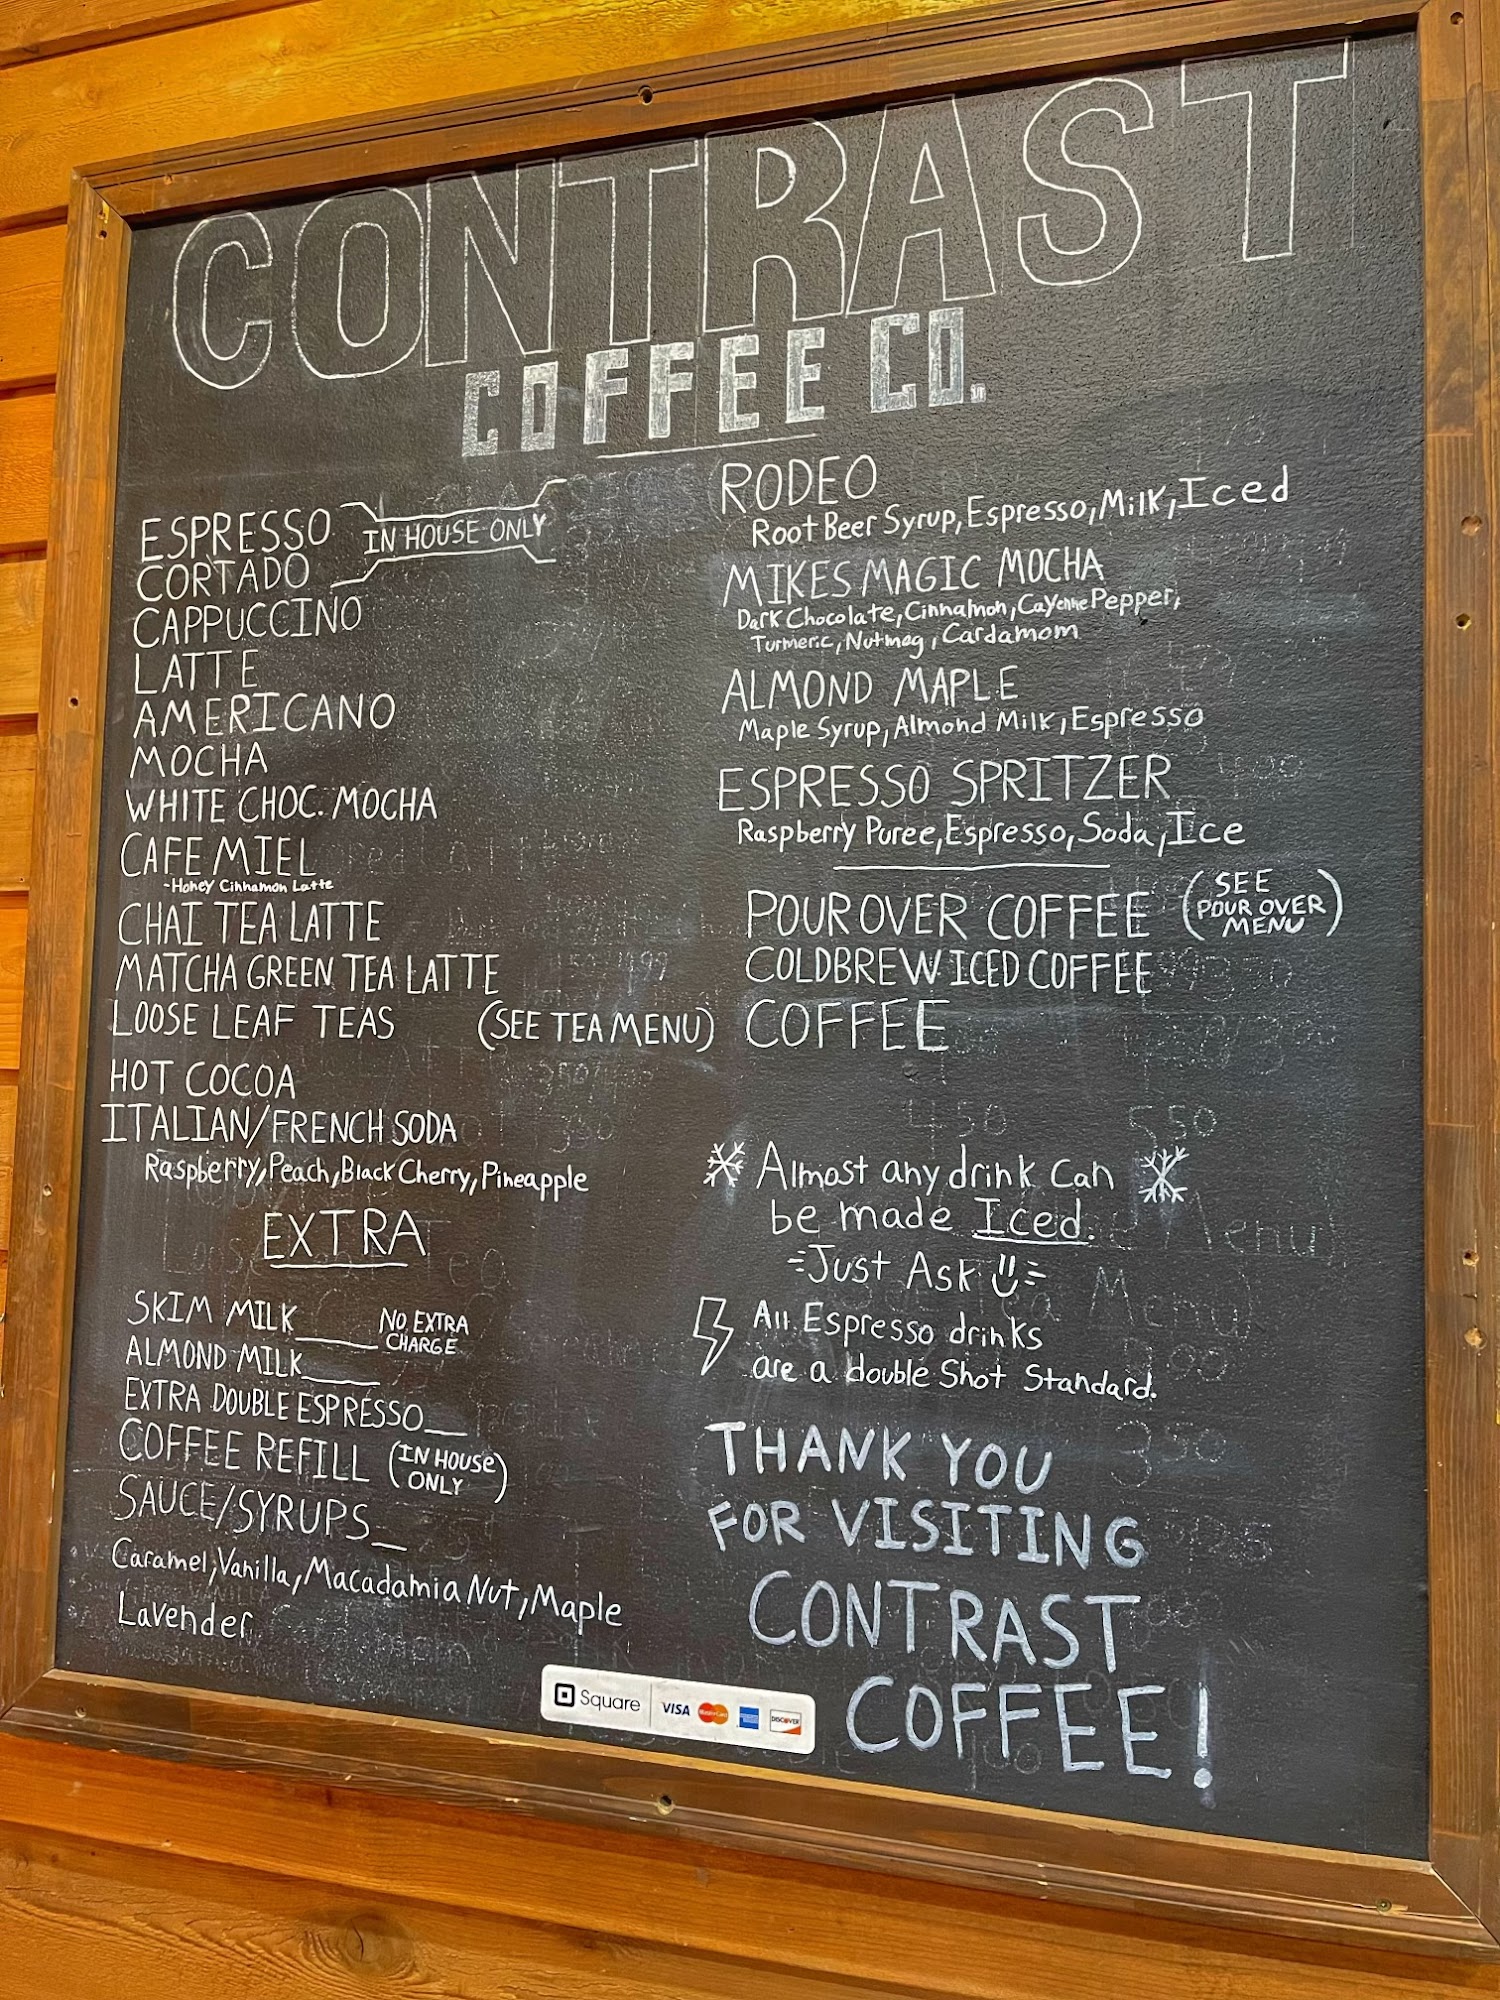 CONTRAST
COFFEE CO.
ESPRESSO
CORTADO
IN HOUSE ONLY
CAPPUCCINO
LATTE
AMERICANO
MOCHA
WHITE CHOC. MOCHA
CAFE MIEL
-Honey Cinnamon Latte
CHAI TEA LATTE
MATCHA GREEN TEA LATTE
LOOSE LEAF TEAS (SEE TEA MENU)
HOT COCOA
ITALIAN/FRENCH SODA
Raspberry, Peach, Black Cherry, Pineapple
EXTRA
SKIM MILK____ NO EXTRA
CHARGE
ALMOND MILK____
EXTRA DOUBLE ESPRESSO__
COFFEE REFILL (IN HOUSE
ONLY)
SAUCE/SYRUPS__
Caramel, Vanilla, Macadamia Nut, Maple
Lavender
RODEO
Root Beer Syrup, Espresso, Milk, Iced
MIKES MAGIC MOCHA
Dark Chocolate, Cinnamon, Cayenne Pepper,
Turmeric, Nutmeg, Cardamom
ALMOND MAPLE
Maple Syrup, Almond Milk, Espresso
ESPRESSO SPRITZER
Raspberry Puree, Espresso, Soda, Ice
POUR OVER COFFEE (SEE
POUR OVER
MENU)
COLDBREW ICED COFFEE
COFFEE
Almost any drink Can
be made Iced.
Just Ask
All Espresso drinks
are a double Shot Standard.
THANK YOU
FOR VISITING
CONTRAST
COFFEE!
Square VISA MasterCard DISCOVER